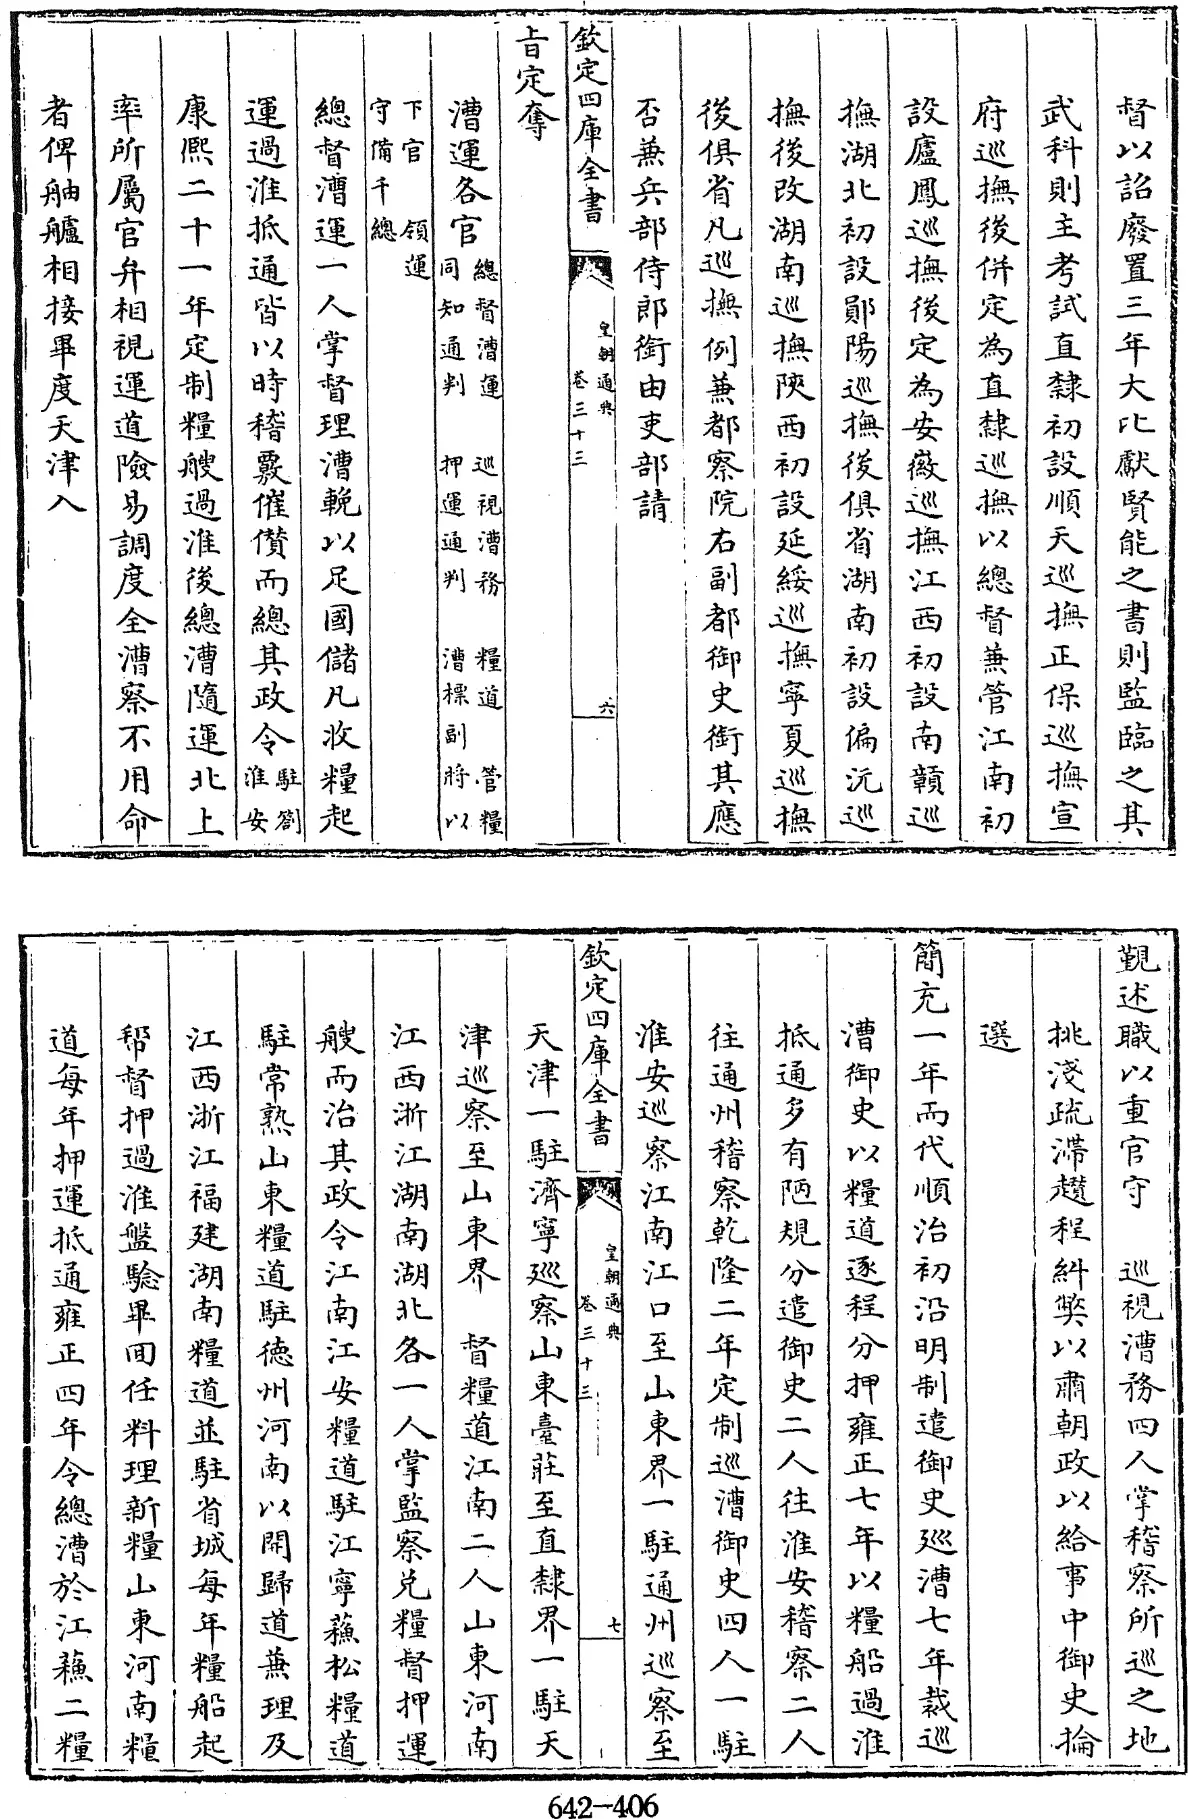 督以詔廢置三年大比獻賢能之書則監臨之其
武科則主考試直隸初設順天巡撫正保巡撫宣
府巡撫後併定為直隸巡撫以總督兼管江南初
設廬鳳巡撫後定為安徽巡撫江西初設南贛巡
撫湖北初設鄖陽巡撫後俱省湖南初設偏沅巡
撫後改湖南巡撫陝西初設延綏巡撫寧夏巡撫
後俱省凡巡撫例兼都察院右副都御史銜其應
否兼兵部侍郎銜由吏部請
欽定四庫全書
皇朝通典
卷三十三
六
旨定奪
漕運各官總督漕運 巡視漕務 糧道 管糧
同知通判 押運通判 漕標副將以
下官 領運
守備千總
總督漕運一人掌督理漕輓以足國儲凡收糧起
運過淮抵通皆以時稽覈催儹而總其政令駐劄
淮安
康熙二十一年定制糧艘過淮後總漕隨運北上
率所屬官弁相視運道險易調度全漕察不用命
者俾舳艫相接畢度天津入
覲述職以重官守 巡視漕務四人掌稽察所巡之地
挑淺疏滯趲程糾弊以肅朝政以給事中御史掄
選
簡充一年而代順治初沿明制遣御史巡漕七年裁巡
漕御史以糧道逐程分押雍正七年以糧船過淮
抵通多有陋規分遣御史二人往淮安稽察二人
往通州稽察乾隆二年定制巡漕御史四人一駐
淮安巡察江南江口至山東界一駐通州巡察至
欽定四庫全書
皇朝通典
卷三十三
七
天津一駐濟寧巡察山東臺莊至直隸界一駐天
津巡察至山東界 督糧道江南二人山東河南
江西浙江湖南湖北各一人掌監察兌糧督押運
艘而治其政令江南江安糧道駐江寧蘇松糧道
駐常熟山東糧道駐德州河南以開歸道兼理及
江西浙江福建湖南糧道並駐省城每年糧船起
幇督押過淮盤驗畢回任料理新糧山東河南糧
道每年押運抵通雍正四年令總漕於江蘇二糧
642-406